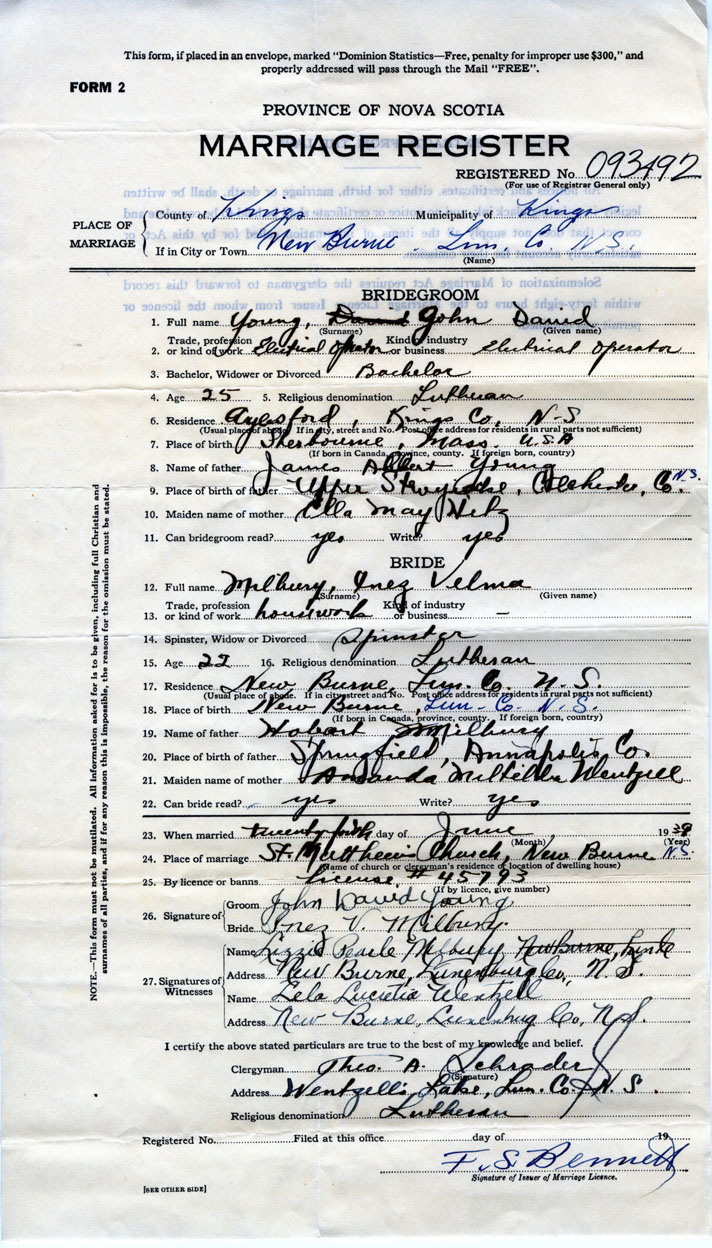 This form, if placed in an envelope, marked "Dominion Statistics—Free, penalty for improper use $300," and
properly addressed will pass through the Mail "FREE".
FORM 2
PROVINCE OF NOVA SCOTIA
MARRIAGE REGISTER
REGISTERED No. 093492
(For use of Registrar General only)
PLACE OF MARRIAGE
County of Kings Municipality of Kings
If in City or Town New Burne. Lun. Co. N.S.
(Name)
BRIDEGROOM
1. Full name Young, David John David
(Surname) (Given name)
Trade, profession Kind of industry
2. or kind of work Electrical Operator or business Electrical Operator
3. Bachelor, Widower or Divorced Bachelor
4. Age 25 5. Religious denomination Lutheran
6. Residence Aylesford, Kings Co., N-S
(Usual place of abode. If in city, street and No. Post office address for residents in rural parts not sufficient)
7. Place of birth Sherbourne, Mass. U.S.A
(If born in Canada, province, county. If foreign born, country)
8. Name of father James Albert Young
9. Place of birth of father Upper Colchester, Co. N.S.
10. Maiden name of mother Ella May
11. Can bridegroom read? yes Write? yes
BRIDE
12. Full name Milbury, Inez Velma
(Surname) (Given name)
Trade, profession Kind of industry
13. or kind of work housework or business —
14. Spinster, Widow or Divorced Spinster
15. Age 22 16. Religious denomination Lutheran
17. Residence New Burne, Lun. Co. N. S.
(Usual place of abode. If in city street and No. Post office address for residents in rural parts not sufficient)
18. Place of birth New Burne, Lun. Co. N.S.
(If born in Canada, province, county. If foreign born, country)
19. Name of father Hobart Milbury
20. Place of birth of father Springfield, Annapolis Co.
21. Maiden name of mother Amanda Wentzell
22. Can bride read? yes Write? yes
23. When married day of June 19
(Month) (Year)
24. Place of marriage St. Matthew's Church, New Burne N.S.
(Name of church or clergyman's residence of location of dwelling house)
25. By licence or banns License # 45793
(If by licence, give number)
26. Signature of
Groom John David Young
Bride Inez V. Milbury
27. Signatures of Witnesses
Name Lizzie Pearle Milbury New Burne,
Address New Burne, Lunenburg Co., N. S.
Name Lela Lucretia Wentzell
Address New Burne, Lunenburg Co, N.S.
I certify the above stated particulars are true to the best of my knowledge and belief.
Clergyman Theo. A. Schrader
(Signature)
Address Wentzell's Lake, Lun. Co. N. S.
Religious denomination Lutheran
Registered No. Filed at this office day of 19
F. S. Bennett
Signature of Issuer of Marriage Licence.
[SEE OTHER SIDE]
NOTE.—This form must not be mutilated. All information asked for is to be given, including full Christian and
surnames of all parties, and if for any reason this is impossible, the reason for the omission must be stated.